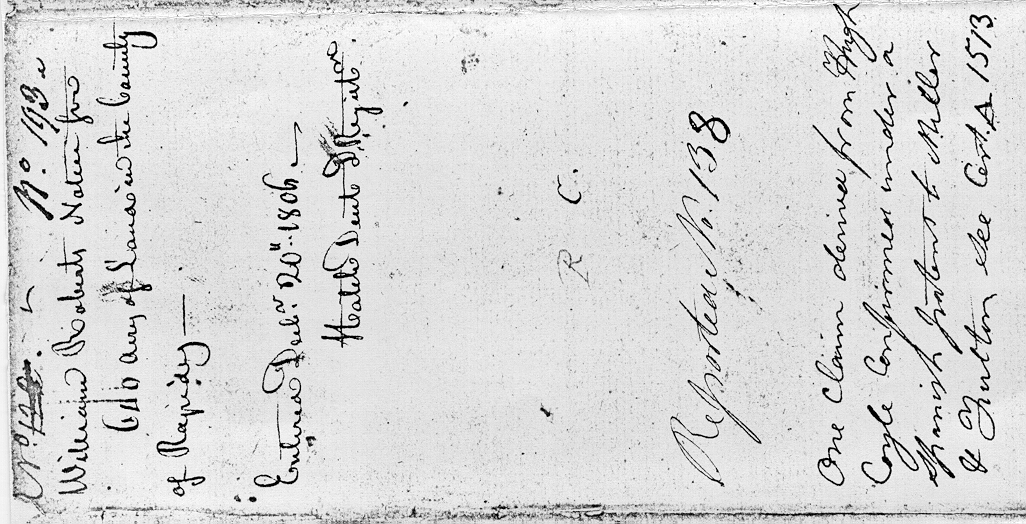 No. 193 a
William Roberts Notice for
640 acres of Land in the County
of Rapides —
Entered Decbr. 20th. 1806 —
Hatch Dent D Register.
R C.
Reported No. 138
One Claim derived from Hugh
Coyle Confirmed under a
Spanish patent to Miller
& Fulton see Cert. A 1513